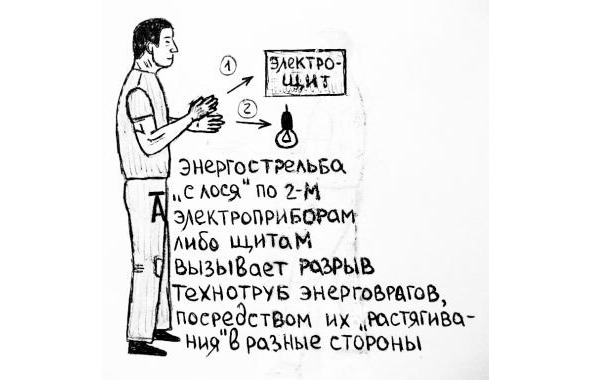 1
ЭЛЕКТРО-
ЩИТ
2
ЭНЕРГОСТРЕЛЬБА
„С ЛОСЯ" ПО 2-М
ЭЛЕКТРОПРИБОРАМ
ЛИБО ЩИТАМ
ВЫЗЫВАЕТ РАЗРЫВ
ТЕХНОТРУБ ЭНЕРГОВРАГОВ,
ПОСРЕДСТВОМ ИХ „РАСТЯГИВА-
НИЯ" В РАЗНЫЕ СТОРОНЫ
А